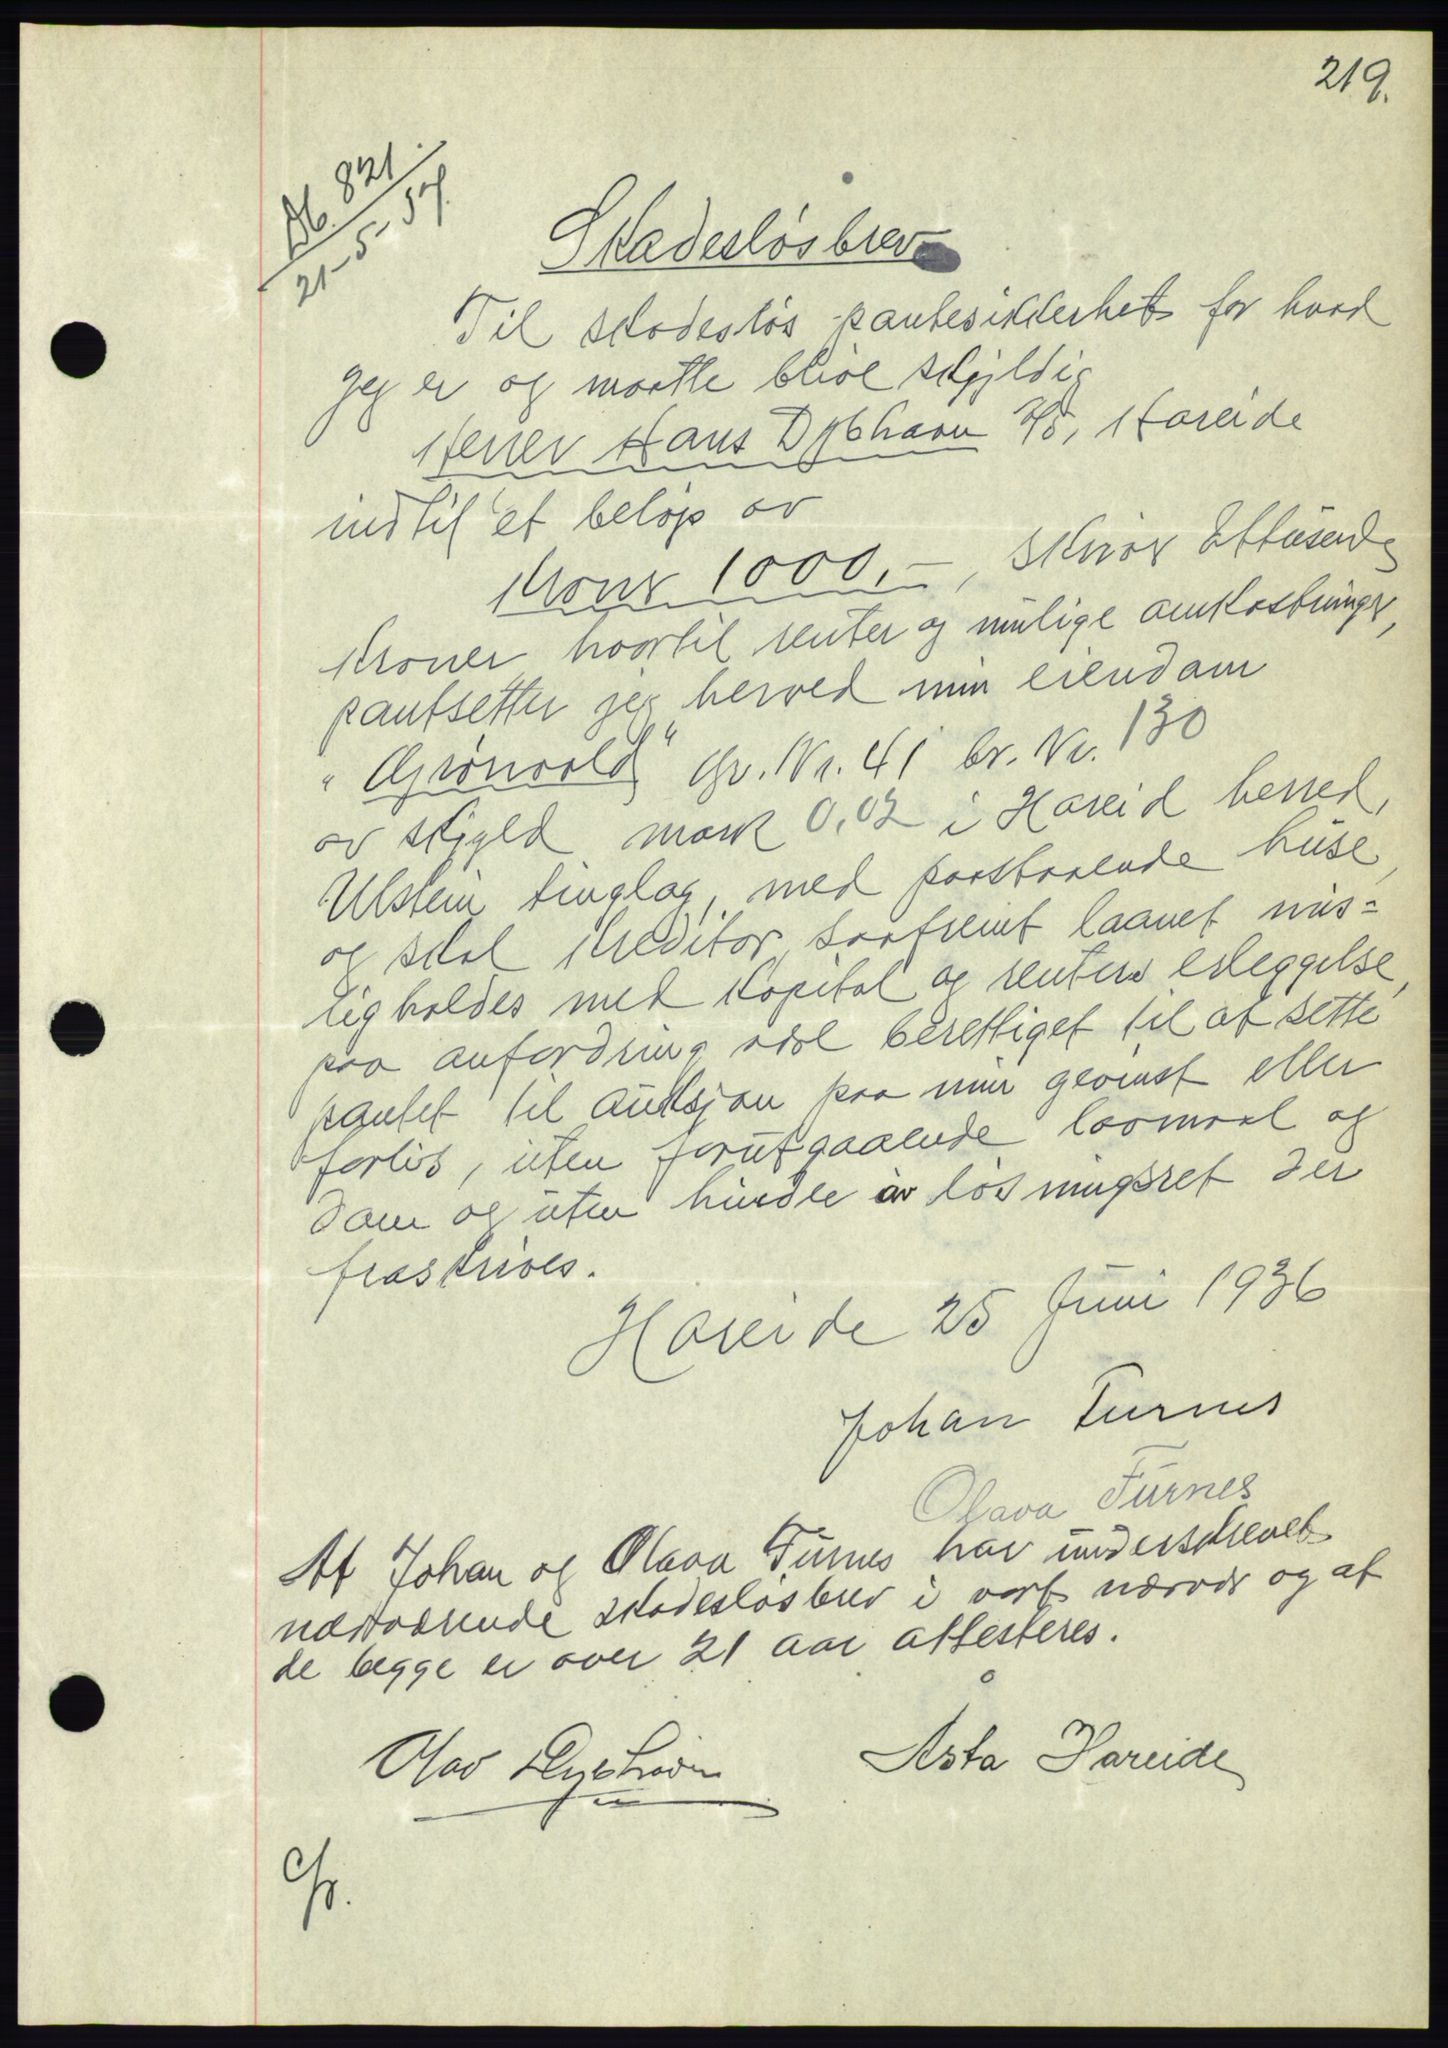 219.
Db. 821.
21-5-37.
Skadesløsbrev
Til skadesløs pantesikkerhet for hvad
jeg er og maatte blive skyldig
Herrer Hans Dybhavn A/S, Hareide
indtil et beløp av
Kroner 1000,-, skriver Ettusende
kroner hvortil renter og mulige omkostninger,
pantsetter jeg herved min eiendom
"Grønvold" Gr. Nr. 41 br. Nr. 130
av skyld mark 0,02 i Hareid herred,
Ulstein tinglag, med paastaaende huse,
og skal kreditor, saafremt laanet mis=
ligholdes med kapital og renters erleggelse,
paa anfordring være berettiget til at sette
pantet til auksjon paa min gevinst eller
forlis, uten forutgaaende lovmaal og
dom og uten hinder av løsningsret der
fraskrives.
Hareide 25 Juni 1936
Johan Furnes
Olava Furnes
At Johan og Olava Furnes har underskrevet
nærværende skadesløsbrev i vort nærvær og at
de begge er over 21 aar attesteres.
Olav Dybhavn
Asta Hareide